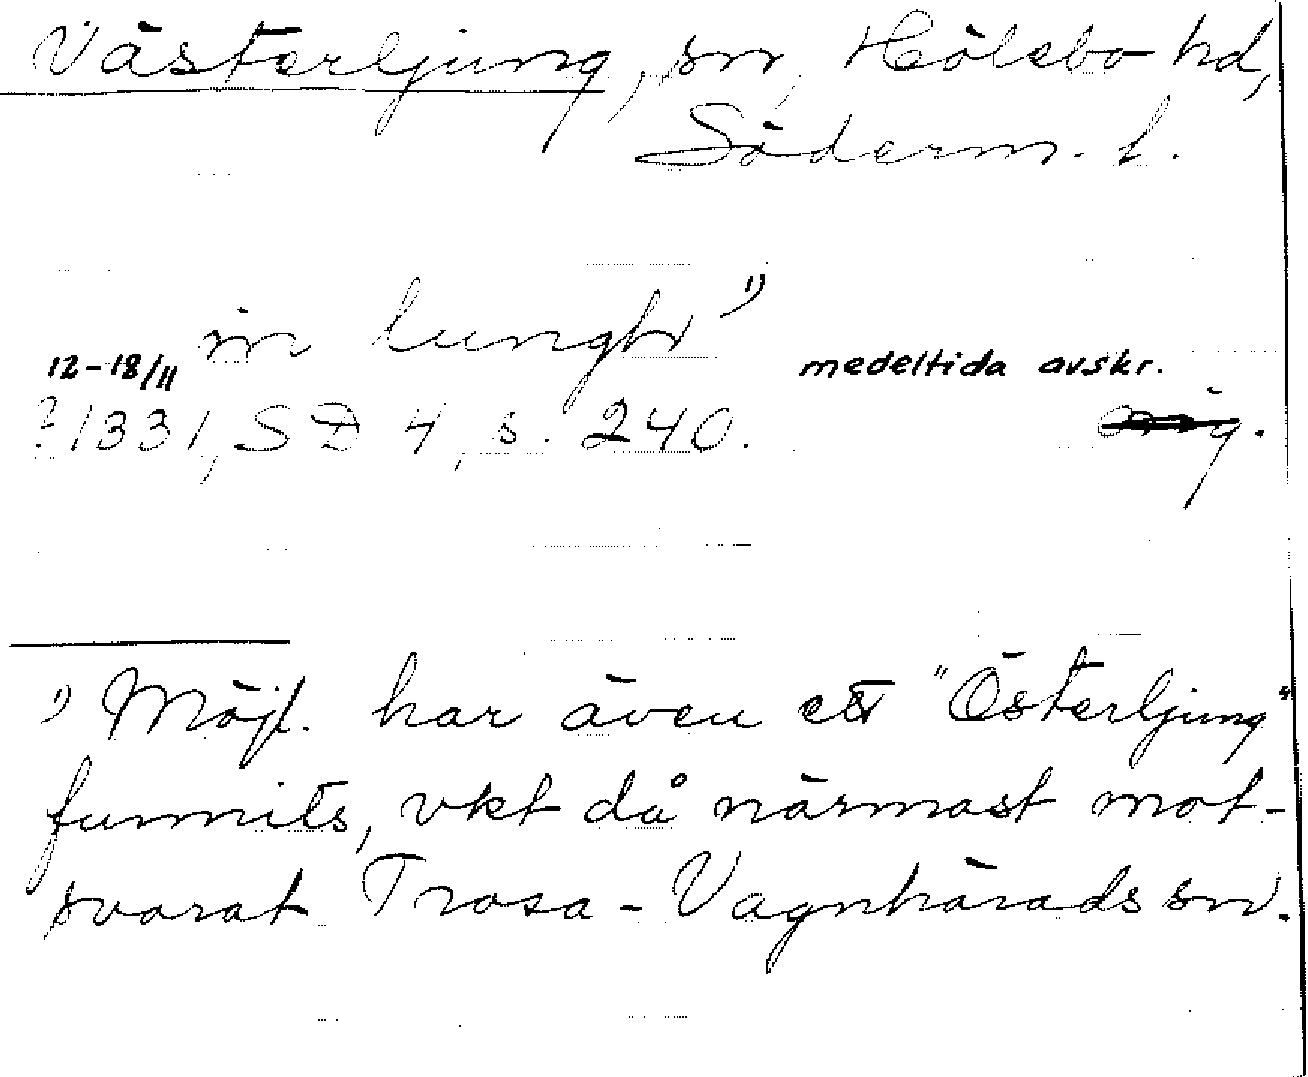 Västerljung, sn, Hölebo hd,
Söderm. l.
in lungh 1)
12-18/11 medeltida avskr.
? 1331, SD 4, s. 240.
1) Möjl. har även ett "Österljung"
funnits, vkt då närmast mot-
svarat Trosa-Vagnhärads sn.